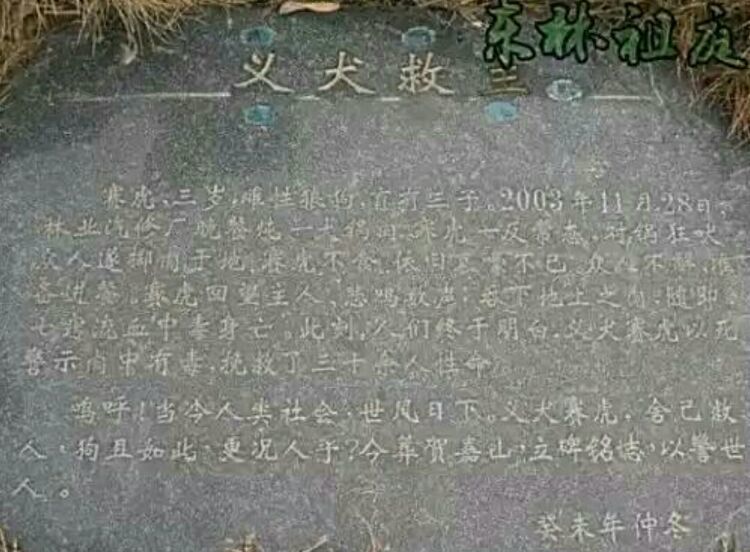 东林祖庭
义犬救主
赛虎,三岁,雌性狼狗,育有三子。2003年11月28日,
林业汽修厂晚餐炖一大锅肉,赛虎一反常态,对锅狂吠
众人遂掷肉于地,赛虎不食,依旧狂吠不已,众人不解,准
备进餐。赛虎回望主人,悲鸣数声,吞下地上之肉,随即
七窍流血中毒身亡。此刻,人们终于明白,义犬赛虎以死
警示肉中有毒,挽救了三十余人性命。
呜呼!当今人类社会,世风日下。义犬赛虎,舍己救
人,狗且如此,更况人乎?今葬贺嘉山,立碑铭志,以警世
人。
癸未年仲冬